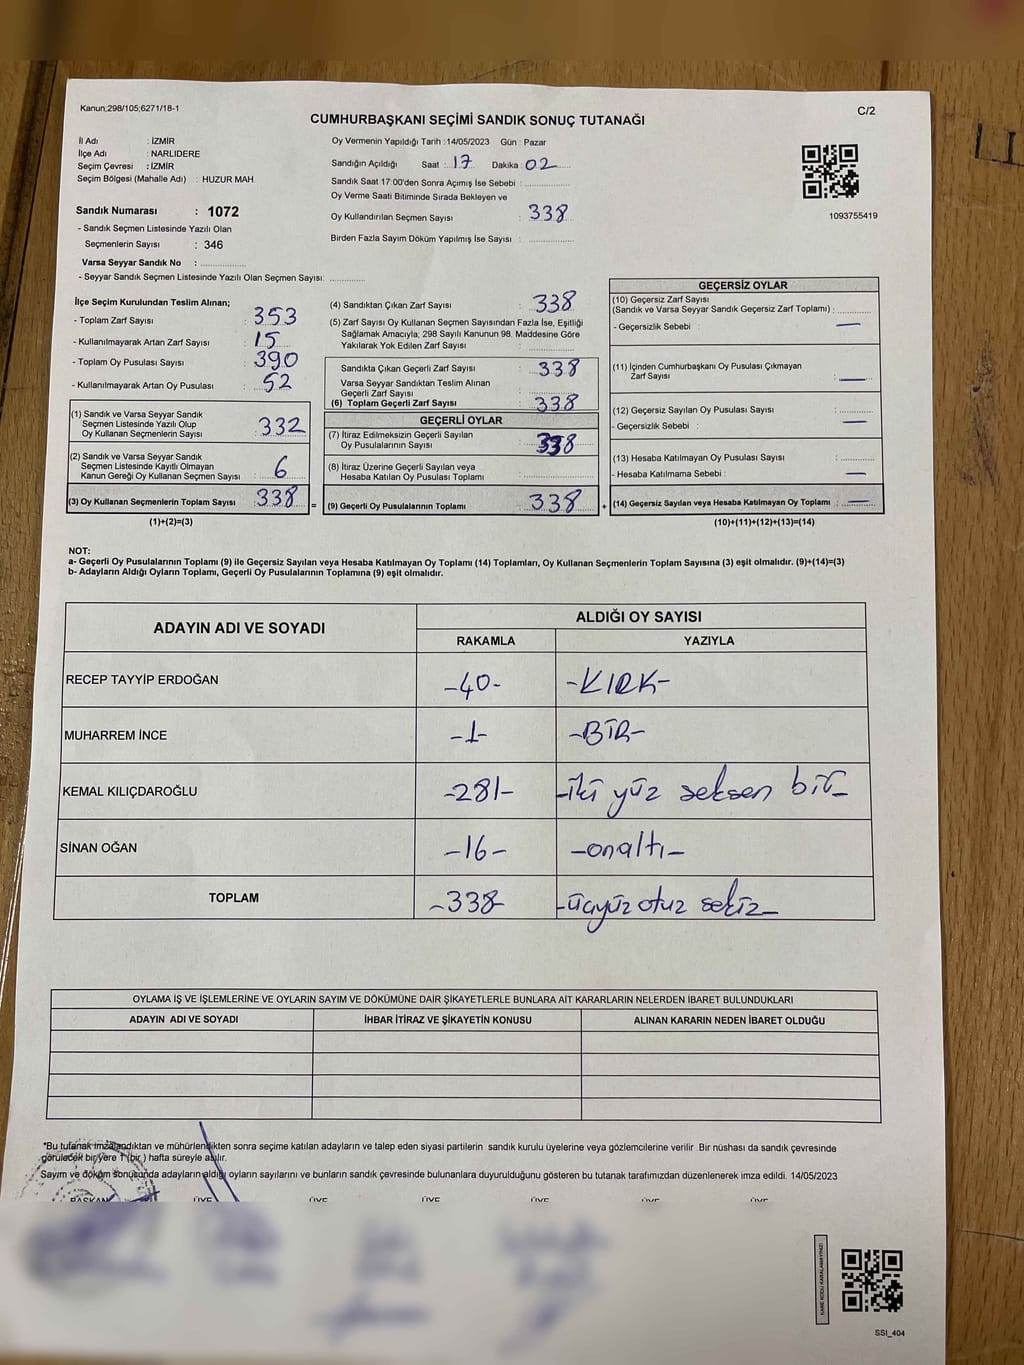 Kanun;298/105;6271/18-1
C/2
CUMHURBAŞKANI SEÇİMİ SANDIK SONUÇ TUTANAĞI
İl Adı : İZMİR
İlçe Adı : NARLIDERE
Seçim Çevresi : İZMİR
Seçim Bölgesi (Mahalle Adı) : HUZUR MAH.
Sandık Numarası : 1072
- Sandık Seçmen Listesinde Yazılı Olan
Seçmenlerin Sayısı : 346
Varsa Seyyar Sandık No : ....................
- Seyyar Sandık Seçmen Listesinde Yazılı Olan Seçmen Sayısı: ..............
Oy Vermenin Yapıldığı Tarih : 14/05/2023 Gün : Pazar
Sandığın Açıldığı Saat : 17 Dakika : 02
Sandık Saat 17:00'den Sonra Açımış İse Sebebi : ....................
Oy Verme Saati Bitiminde Sırada Bekleyen ve
Oy Kullandırılan Seçmen Sayısı : 338
Birden Fazla Sayım Döküm Yapılmış İse Sayısı : ....................
1093755419
İlçe Seçim Kurulundan Teslim Alınan;
- Toplam Zarf Sayısı : 353
- Kullanılmayarak Artan Zarf Sayısı : 15
- Toplam Oy Pusulası Sayısı : 390
- Kullanılmayarak Artan Oy Pusulası : 52
(1) Sandık ve Varsa Seyyar Sandık
Seçmen Listesinde Yazılı Olup
Oy Kullanan Seçmenlerin Sayısı : 332
(2) Sandık ve Varsa Seyyar Sandık
Seçmen Listesinde Kayıtlı Olmayan
Kanun Gereği Oy Kullanan Seçmen Sayısı : 6
(3) Oy Kullanan Seçmenlerin Toplam Sayısı : 338 =
(1)+(2)=(3)
(4) Sandıktan Çıkan Zarf Sayısı : 338
(5) Zarf Sayısı Oy Kullanan Seçmen Sayısından Fazla İse, Eşitliği
Sağlamak Amacıyla; 298 Sayılı Kanunun 98. Maddesine Göre
Yakılarak Yok Edilen Zarf Sayısı : ....................
Sandıkta Çıkan Geçerli Zarf Sayısı : 338
Varsa Seyyar Sandıktan Teslim Alınan
Geçerli Zarf Sayısı : ....................
(6) Toplam Geçerli Zarf Sayısı : 338
GEÇERLİ OYLAR
(7) İtiraz Edilmeksizin Geçerli Sayılan
Oy Pusulalarının Sayısı : 338
(8) İtiraz Üzerine Geçerli Sayılan veya
Hesaba Katılan Oy Pusulası Toplamı : ....................
(9) Geçerli Oy Pusulalarının Toplamı : 338 +
GEÇERSİZ OYLAR
(10) Geçersiz Zarf Sayısı
(Sandık ve Varsa Seyyar Sandık Geçersiz Zarf Toplamı) : ..............
- Geçersizlik Sebebi : —
(11) İçinden Cumhurbaşkanı Oy Pusulası Çıkmayan
Zarf Sayısı : —
(12) Geçersiz Sayılan Oy Pusulası Sayısı : ..............
- Geçersizlik Sebebi : —
(13) Hesaba Katılmayan Oy Pusulası Sayısı : ..............
- Hesaba Katılmama Sebebi : —
(14) Geçersiz Sayılan veya Hesaba Katılmayan Oy Toplamı : —
(10)+(11)+(12)+(13)=(14)
NOT:
a- Geçerli Oy Pusulalarının Toplamı (9) ile Geçersiz Sayılan veya Hesaba Katılmayan Oy Toplamı (14) Toplamları, Oy Kullanan Seçmenlerin Toplam Sayısına (3) eşit olmalıdır. (9)+(14)=(3)
b- Adayların Aldığı Oyların Toplamı, Geçerli Oy Pusulalarının Toplamına (9) eşit olmalıdır.
ADAYIN ADI VE SOYADI
ALDIĞI OY SAYISI
RAKAMLA YAZIYLA
RECEP TAYYİP ERDOĞAN -40- -KIRK-
MUHARREM İNCE -1- -BİR-
KEMAL KILIÇDAROĞLU -281- -iki yüz seksen bir-
SİNAN OĞAN -16- -onaltı-
TOPLAM -338- -üçyüz otuz sekiz-
OYLAMA İŞ VE İŞLEMLERİNE VE OYLARIN SAYIM VE DÖKÜMÜNE DAİR ŞİKAYETLERLE BUNLARA AİT KARARLARIN NELERDEN İBARET BULUNDUKLARI
ADAYIN ADI VE SOYADI İHBAR İTİRAZ VE ŞİKAYETİN KONUSU ALINAN KARARIN NEDEN İBARET OLDUĞU
*Bu tutanak imzalandıktan ve mühürlendikten sonra seçime katılan adayların ve talep eden siyasi partilerin sandık kurulu üyelerine veya gözlemcilerine verilir. Bir nüshası da sandık çevresinde
görülecek bir yere 1 (bir ) hafta süreyle asılır.
Sayım ve döküm sonucunda adayların aldığı oyların sayılarını ve bunların sandık çevresinde bulunanlara duyurulduğunu gösteren bu tutanak tarafımızdan düzenlenerek imza edildi. 14/05/2023
BAŞKAN ÜYE ÜYE ÜYE ÜYE ÜYE ÜYE
KARE KODU KARALAMAYINIZ!
SSI_404